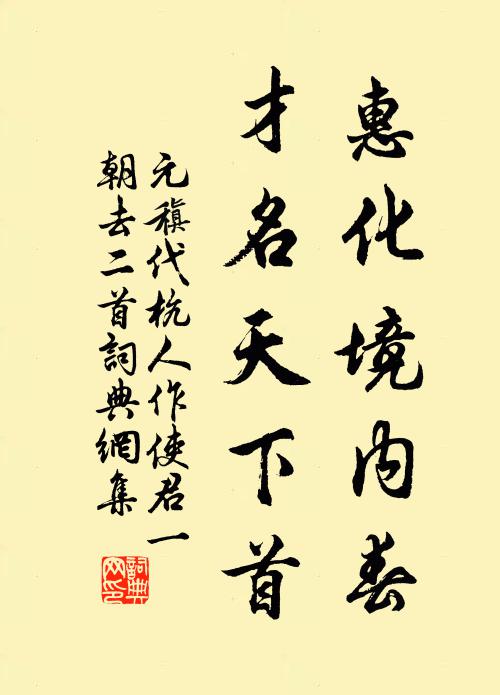 惠化境内春
才名天下首
元稹代杭人作使君一
朝去二首詞典網集
詞典网印